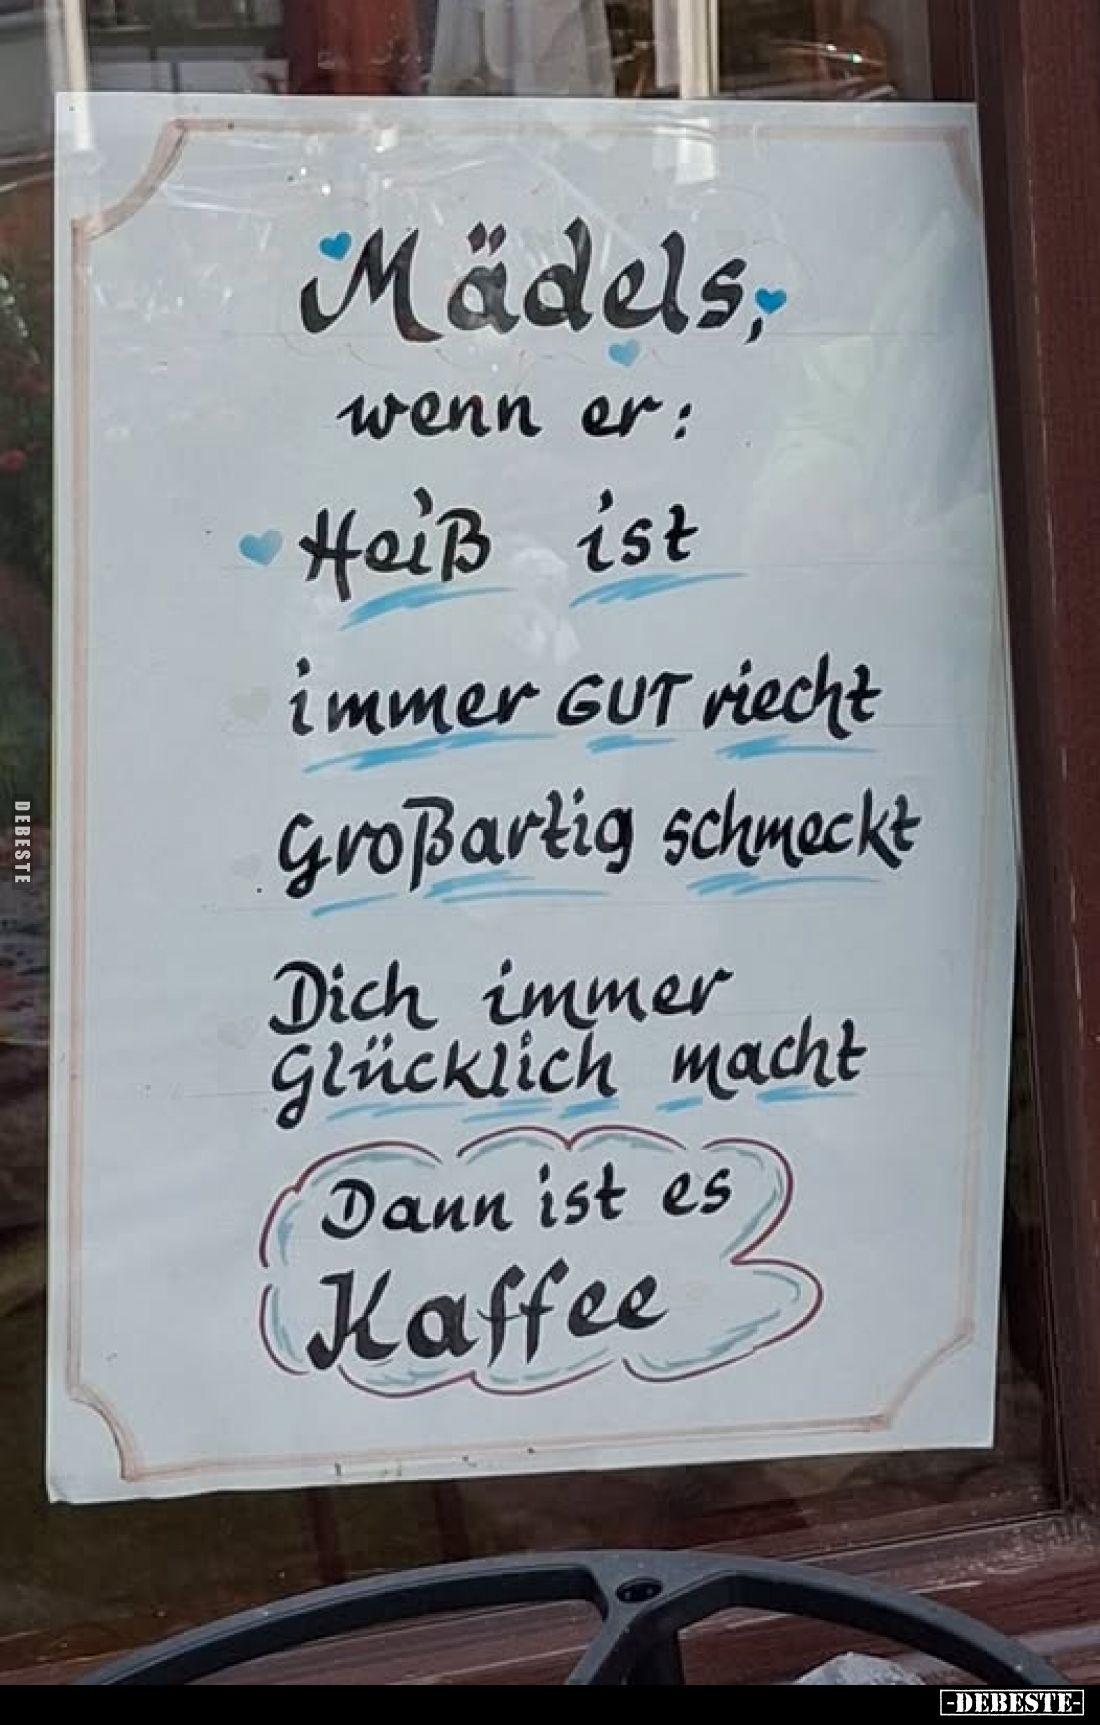 Mädels,
wenn er:
Heiß ist
immer GUT riecht
Großartig schmeckt
Dich immer
Glücklich macht
Dann ist es
Kaffee
DEBESTE
-DEBESTE-